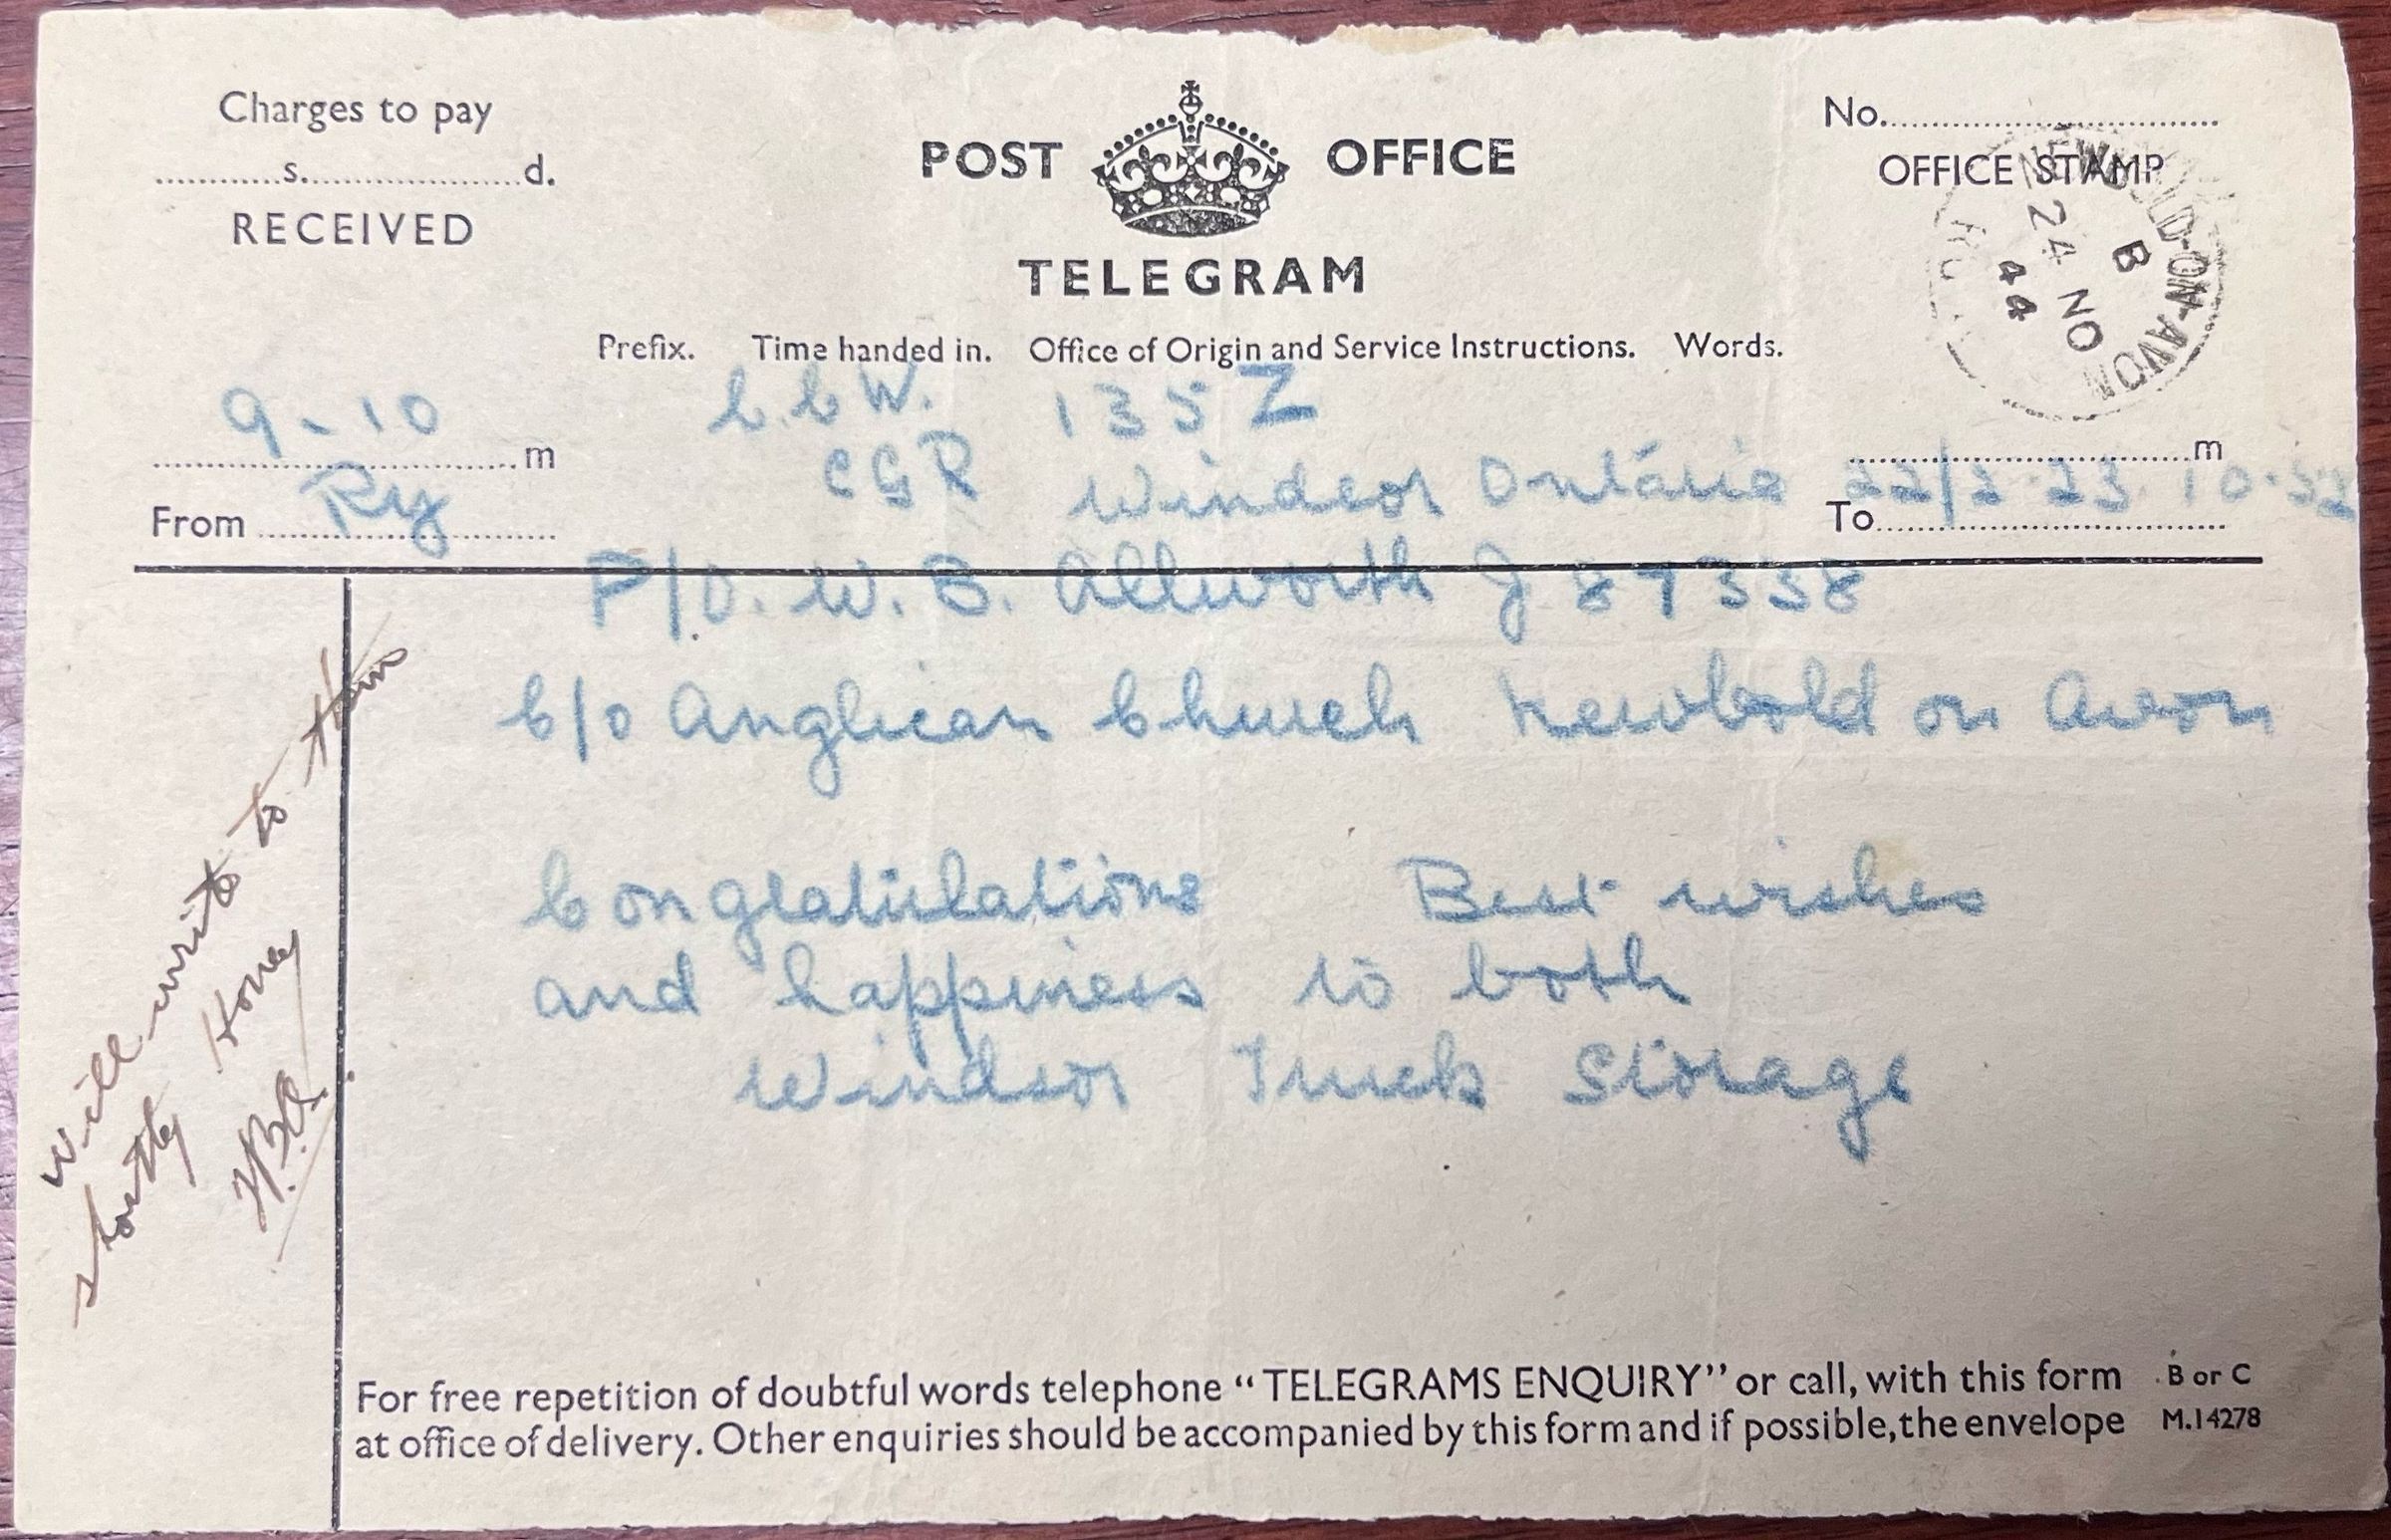 Charges to pay
s. d.
RECEIVED
POST OFFICE
TELEGRAM
No.
OFFICE STAMP
NEWBOLD-ON-AVON
B
24 NO
44
Prefix. Time handed in. Office of Origin and Service Instructions. Words.
9-10 m
From Ry
CCW. 135 Z
CGR Windsor Ontario 22/2 23 10.52
m
To
P/O. W. B. Allworth J 87338
C/O Anglican Church Newbold on Avon
Congratulations Best wishes
and happiness to both
Windsor Truck Storage
Will write to them
shortly Honey
For free repetition of doubtful words telephone “TELEGRAMS ENQUIRY” or call, with this form
at office of delivery. Other enquiries should be accompanied by this form and if possible, the envelope
B or C
M.14278